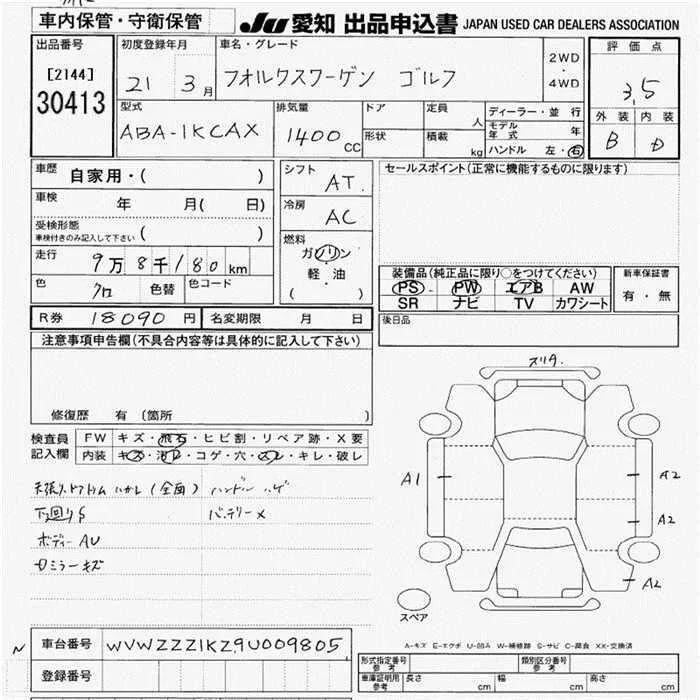 車内保管・守衛保管
JU 愛知 出品申込書 JAPAN USED CAR DEALERS ASSOCIATION
出品番号
[2144]
30413
初度登録年月
21 3月
車名・グレード
フォルクスワーゲン ゴルフ
2WD
・
4WD
評価点
3,5
外装 内装
B D
型式
ABA-1KCAX
排気量
1400cc
ドア
形状
定員
人
積載
kg
ディーラー・並行
モデル年式 年
ハンドル 左・右
車歴
自家用・( )
車検
年 月( 日)
受検形態
車検付きのみ記入して下さい ( )
走行
9万8千180km
色
クロ
色替
色コード
シフト
AT
冷房
AC
燃料
ガソリン
軽・油
( )
セールスポイント(正常に機能するものに限ります)
装備品(純正品に限り○をつけてください)
PS PW エアB AW
SR ナビ TV カワシート
新車保証書
有・無
R券 18090円
名変期限 月 日
後日品
注意事項申告欄(不具合内容等は具体的に記入して下さい)
修復歴 有(箇所 )
検査員
記入欄
FW キズ・飛石・ヒビ割・リペア跡・X要
内装 キズ・汚レ・コゲ・穴・スレ・キレ・破レ
天張り、ドアトリム ハガレ(全面) ハンドル ハゲ
下回りS バッテリーX
ボディーAU
ミラーキズ
スリキ.
A1
A2
A2
A2
スペア
A-キズ E-エクボ U-凹み W-補修跡 S-サビ C-腐食 XX-交換済
N
車台番号 WVWZZZ1KZ9U009805
登録番号
形式指定番号
参考
類別区分番号
参考
車庫証明用
参考
長さ cm 幅 cm 高さ cm